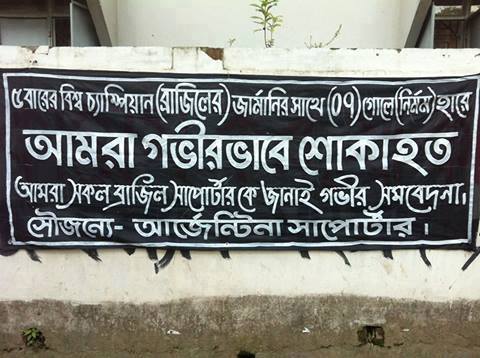 ৫ বারের বিশ্ব চ্যাম্পিয়ান (ব্রাজিলের) জার্মানির সাথে (০৭) গোলে (নির্মম) হারে
আমরা গভীরভাবে শোকাহত
আমরা সকল ব্রাজিল সাপোর্টার কে জানাই গভীর সমবেদনা,
সৌজন্যে- আর্জেন্টিনা সাপোর্টার।